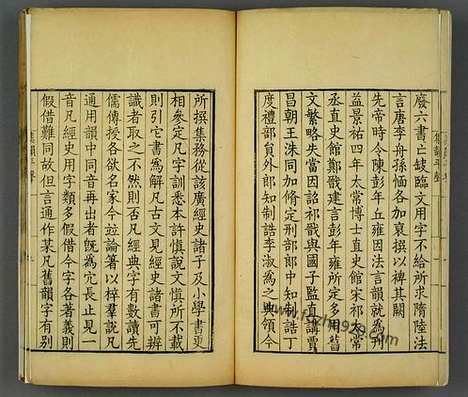 廢六書亡缺臨文用字不給所求隋陸法
言唐李舟孫愐各加裒撰以裨其闕
先帝時令陳彭年丘雍因法言韻就為刊
益景祐四年太常博士直史館宋祁太常
丞直史館鄭戩建言彭年雍所定多用舊
文繁略失當因詔祁戩與國子監直講賈
昌朝王洙同加脩定刑部郎中知制誥丁
度禮部員外郎知制誥李淑為之典領今
所撰集務從該廣經史諸子及小學書更
相參定凡字訓悉本許慎說文慎所不載
則引它書為解凡古文見經史諸書可辨
識者取之不然則否凡經典字有數讀先
儒傳授各欲名家今並論著以稡羣說凡
通用韻中同音再出者旣為冗長止見一
音凡經史用字類多假借今字各著義則
假借難同故但言通作某凡舊韻字有別
集韻平聲